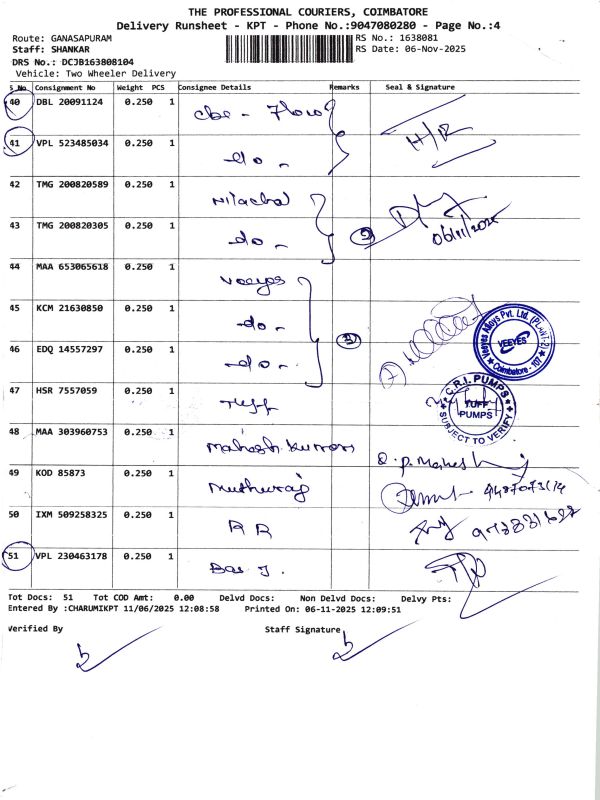 THE PROFESSIONAL COURIERS, COIMBATORE
Delivery Runsheet - KPT - Phone No.:9047080280 - Page No.:4
Route: GANASAPURAM RS No.: 1638081
Staff: SHANKAR RS Date: 06-Nov-2025
DRS No.: DCJB163808104
Vehicle: Two Wheeler Delivery
S No. Consignment No Weight PCS Consignee Details Remarks Seal & Signature
40 DBL 20091124 0.250 1 Cbe - Flow H/R
41 VPL 523485034 0.250 1 - do -
42 TMG 200820589 0.250 1 Nilachal
43 TMG 200820305 0.250 1 - do - 06/11/2025
44 MAA 653065618 0.250 1 Veeyes
45 KCM 21630850 0.250 1 - do -
Veeyes Alloys Pvt. Ltd. (PLANT-2)
VEEYES
Coimbatore - 107
46 EDQ 14557297 0.250 1 - do -
47 HSR 7557059 0.250 1 Tuff
C.R.I. PUMPS
TUFF
PUMPS
SUBJECT TO VERIFY
48 MAA 303960753 0.250 1 Mahesh Kumar
49 KOD 85873 0.250 1 Muthuraj
50 IXM 509258325 0.250 1 A R
51 VPL 230463178 0.250 1
Tot Docs: 51 Tot COD Amt: 0.00 Delvd Docs: Non Delvd Docs: Delvy Pts:
Entered By :CHARUMIKPT 11/06/2025 12:08:58 Printed On: 06-11-2025 12:09:51
Verified By Staff Signature